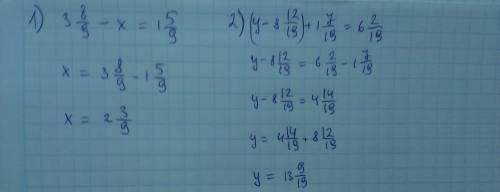 1) 3 8/9 - x = 1 5/9
x = 3 8/9 - 1 5/9
x = 2 3/9
2) (y - 8 12/19) + 1 7/19 = 6 2/19
y - 8 12/19 = 6 2/19 - 1 7/19
y - 8 12/19 = 4 14/19
y = 4 14/19 + 8 12/19
y = 13 9/19